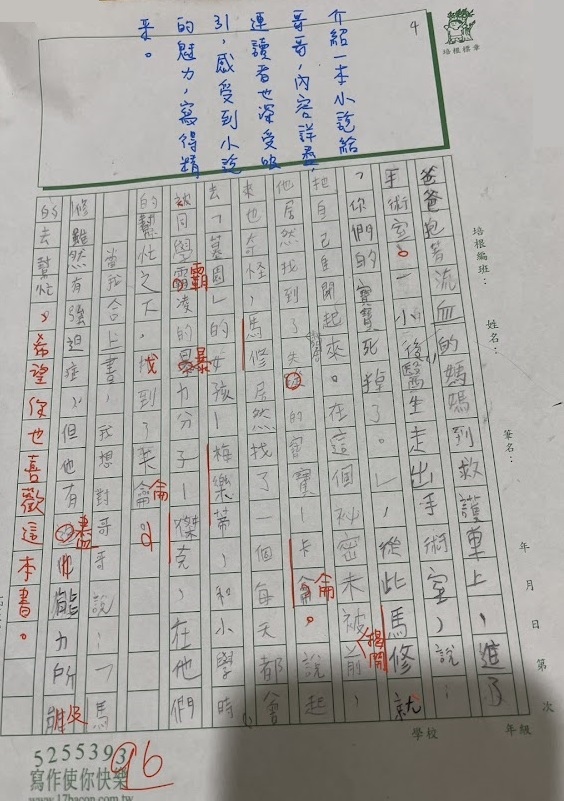 4
培根標章
介紹一本小說給
哥哥,內容詳盡,
連讀者也深受吸
引,感受到小說
的魅力,寫得精
采。
培根編班:
姓名:
筆名:
年 月 日 第 次
學校 年級
爸爸抱著流血的媽媽到救護車上,進了
手術室。一小時後醫生走出手術室,說:
「你們的寶寶死掉了。」,從此馬修就
把自己自閉起來。在這個祕密未被揭開前,
他居然找到了失蹤的寶寶—卡龠龠。說起
來也奇怪,馬修居然找了一個每天都會
去「墓園」的女孩—梅樂蒂,和小學時
被同學霸凌的暴力分子—傑克,在他們
的幫忙之下,找到了美龠龠。
當我合上書,我想對哥哥說:「馬
修雖然有強迫症,但他有盡他能力所能及
的去幫忙。希望你也喜歡這本書。
96
5255393
寫作使你快樂
www.17bacon.com.tw